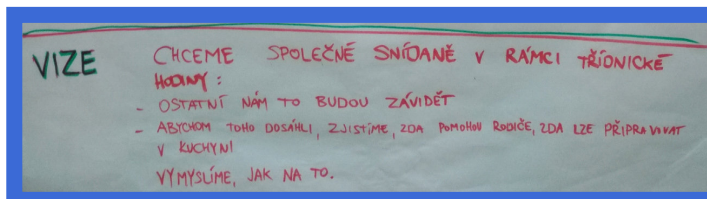 VIZE CHCEME SPOLEČNÉ SNÍDANĚ V RÁMCI TŘÍDNICKÉ
HODINY:
- OSTATNÍ NÁM TO BUDOU ZÁVIDĚT
- ABYCHOM TOHO DOSÁHLI, ZJISTÍME, ZDA POMOHOU RODIČE, ZDA LZE PŘIPRAVOVAT
V KUCHYNI
VYMYSLÍME, JAK NA TO.